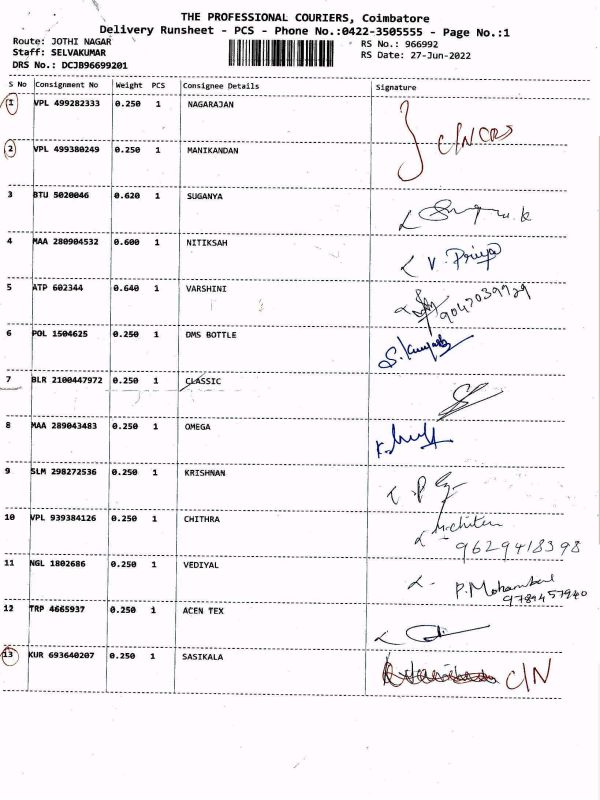 THE PROFESSIONAL COURIERS, Coimbatore
Delivery Runsheet - PCS - Phone No.:0422-3505555 - Page No.:1
Route: JOTHI NAGAR
RS No.: 966992
Staff: SELVAKUMAR
RS Date: 27-Jun-2022
DRS No.: DCJB96699201
S No Consignment No Weight PCS Consignee Details Signature
1 VPL 499282333 0.250 1 NAGARAJAN
2 VPL 499380249 0.250 1 MANIKANDAN
3 BTU 5020046 0.620 1 SUGANYA
4 MAA 280904532 0.600 1 NITIKSAH V. Priya
5 ATP 602344 0.640 1 VARSHINI
6 POL 1504625 0.250 1 DMS BOTTLE
7 BLR 2100447972 0.250 1 CLASSIC
8 MAA 289043483 0.250 1 OMEGA
9 SLM 298272536 0.250 1 KRISHNAN
10 VPL 939384126 0.250 1 CHITHRA
9629418398
11 NGL 1802686 0.250 1 VEDIYAL
12 TRP 4665937 0.250 1 ACEN TEX
13 KUR 693640207 0.250 1 SASIKALA C/N